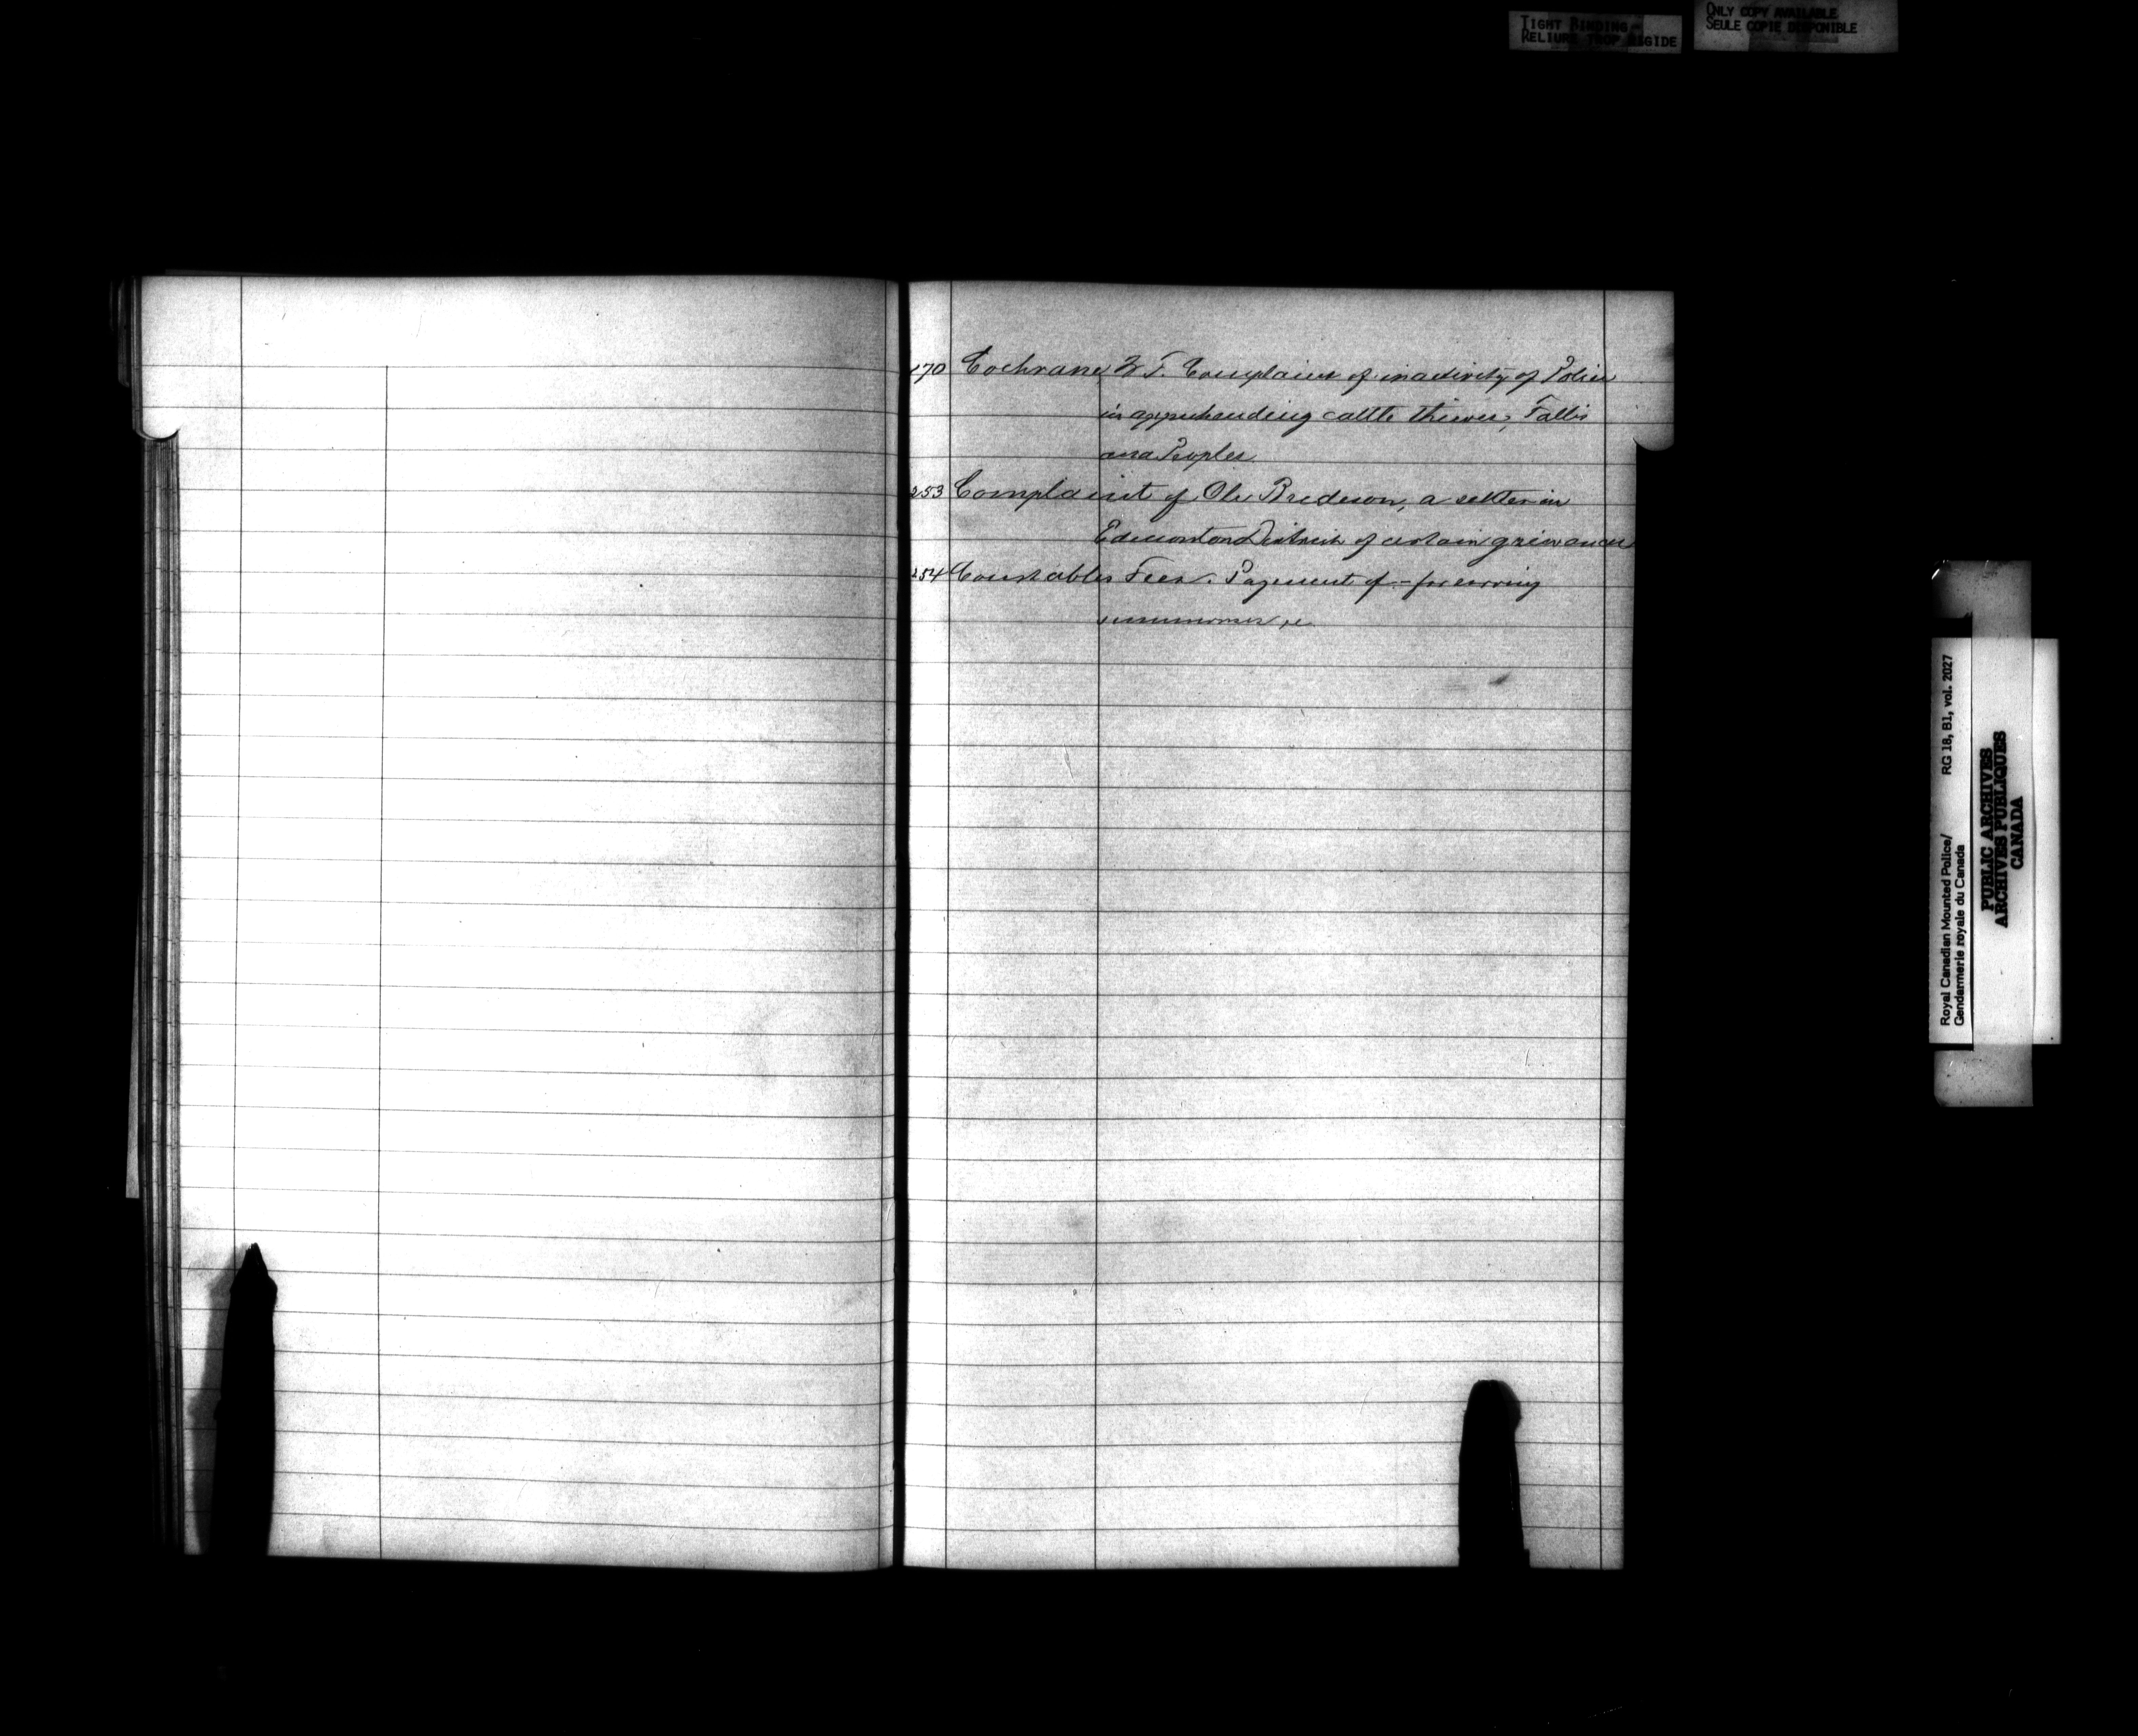 TIGHT BINDING
RELIURE TROP RIGIDE
ONLY COPY AVAILABLE
SEULE COPIE DISPONIBLE
170 Cochrane W F. Complaint of inactivity of Police
in apprehending cattle thieves, Fallis
and Peoples
253 Complaint of Ole Bredeson, a settler in
Edmonton District of certain grievances
254 Constables Fees. Payment of – for serving
summonses, &c.
Royal Canadian Mounted Police/ RG 18, B1, vol. 2027
Gendarmerie royale du Canada
PUBLIC ARCHIVES
ARCHIVES PUBLIQUES
CANADA